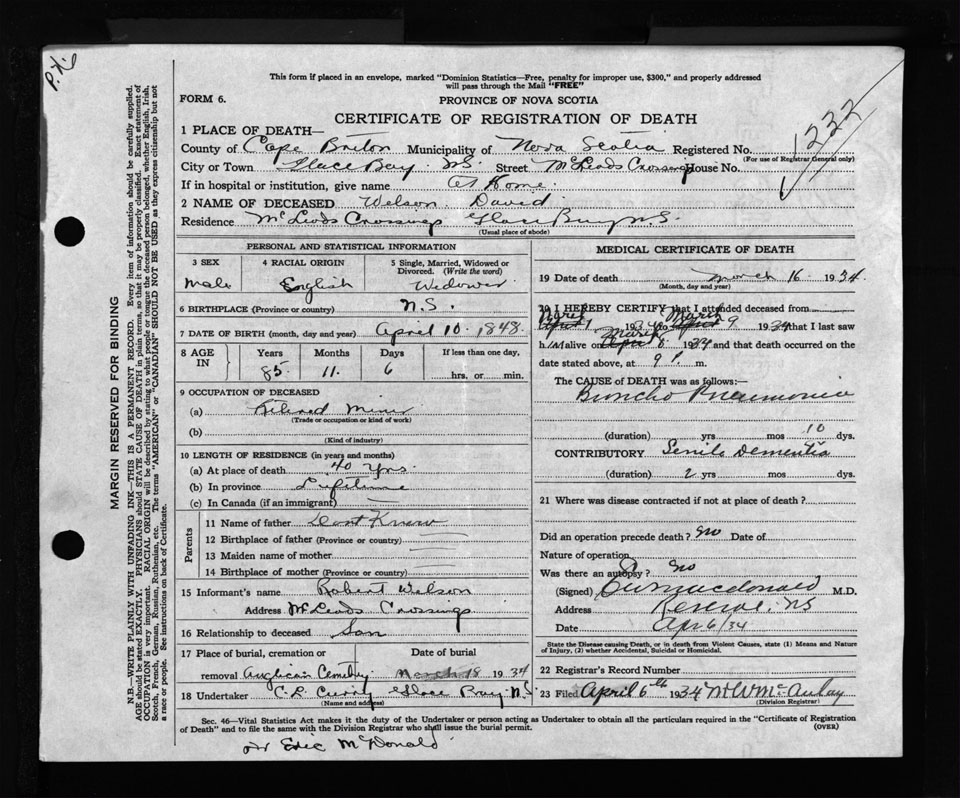 P.H.
This form if placed in an envelope, marked "Dominion Statistics—Free, penalty for improper use, $300," and properly addressed
will pass through the Mail "FREE"
FORM 6.
PROVINCE OF NOVA SCOTIA
CERTIFICATE OF REGISTRATION OF DEATH
1232
1 PLACE OF DEATH—
County of Cape Breton Municipality of Nova Scotia Registered No.
(For use of Registrar General only)
City or Town Glace Bay. N.S. Street McLeods Crossing House No.
If in hospital or institution, give name At Home.
2 NAME OF DECEASED Welson David
Residence McLeods Crossings Glace Bay N.S.
(Usual place of abode)
PERSONAL AND STATISTICAL INFORMATION
3 SEX 4 RACIAL ORIGIN 5 Single, Married, Widowed or Divorced. (Write the word)
Male English Widower
6 BIRTHPLACE (Province or country) N.S.
7 DATE OF BIRTH (month, day and year) April 10. 1848.
8 AGE IN Years Months Days If less than one day,
85 11. 6 hrs. or min.
9 OCCUPATION OF DECEASED
(a) Retired Miner
(Trade or occupation or kind of work)
(b)
(Kind of industry)
10 LENGTH OF RESIDENCE (in years and months)
(a) At place of death 40 Yrs.
(b) In province Lifetime
(c) In Canada (if an immigrant)
Parents
11 Name of father Dont Know
12 Birthplace of father (Province or country)
13 Maiden name of mother
14 Birthplace of mother (Province or country)
15 Informant's name Robert Welson
Address McLeods Crossings
16 Relationship to deceased Son
17 Place of burial, cremation or Date of burial
removal Anglican Cemetery March 18 1934
18 Undertaker C.R. Curry Glace Bay N.S.
(Name and address)
MEDICAL CERTIFICATE OF DEATH
19 Date of death March 16. 1934.
(Month, day and year)
20 I HEREBY CERTIFY that I attended deceased from
March 1934 to March 9 1934 that I last saw
him alive on March 8 1934 and that death occurred on the
date stated above, at 9 P. m.
The CAUSE OF DEATH was as follows:—
Buncho Pneumonia
(duration) yrs mos 10 dys.
CONTRIBUTORY Senile Dementia
(duration) 2 yrs mos dys.
21 Where was disease contracted if not at place of death?
Did an operation precede death? No Date of
Nature of operation
Was there an autopsy? No
(Signed) Macdonald M.D.
Address Reserve, NS
Date Apr 6/34
State the Disease causing Death, or in death from Violent Causes, state (1) Means and Nature
of Injury, (2) whether Accidental, Suicidal or Homicidal.
22 Registrar's Record Number
23 Filed April 6th 1934 McAulay
(Division Registrar)
Sec. 46—Vital Statistics Act makes it the duty of the Undertaker or person acting as Undertaker to obtain all the particulars required in the "Certificate of Registration
of Death" and to file the same with the Division Registrar who shall issue the burial permit.
(OVER)
Dr Eric McDonald
MARGIN RESERVED FOR BINDING
N.B.—WRITE PLAINLY WITH UNFADING INK—THIS IS A PERMANENT RECORD. Every item of information should be carefully supplied.
AGE should be stated EXACTLY. PHYSICIANS should STATE CAUSE OF DEATH in plain terms, so that it may be properly classified. Exact statement of
OCCUPATION is very important. RACIAL ORIGIN will be described by stating to what people or tongue the deceased person belonged, whether English, Irish,
Scotch, French, German, Russian, Ruthenian, etc. The terms "AMERICAN" or "CANADIAN" SHOULD NOT BE USED as they express citizenship but not
a race or people. See instructions on back of Certificate.